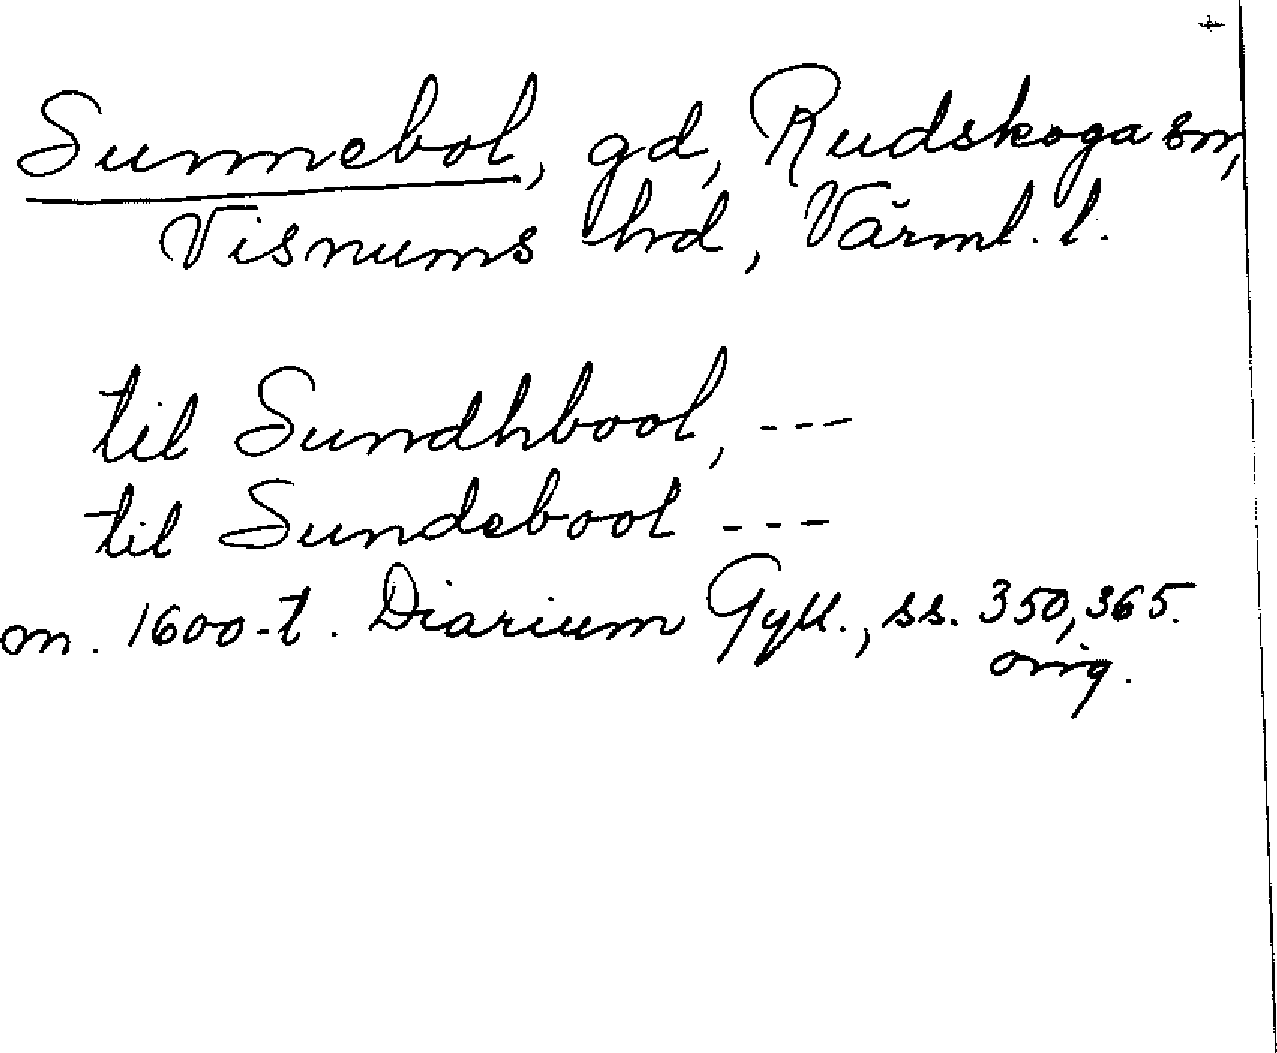 Sunnebol, gd, Rudskoga sn,
Visnums hd, Värml. l.
til Sundhbool, ---
til Sundebool ---
m. 1600-t. Diarium Gyll., ss. 350, 365.
orig.